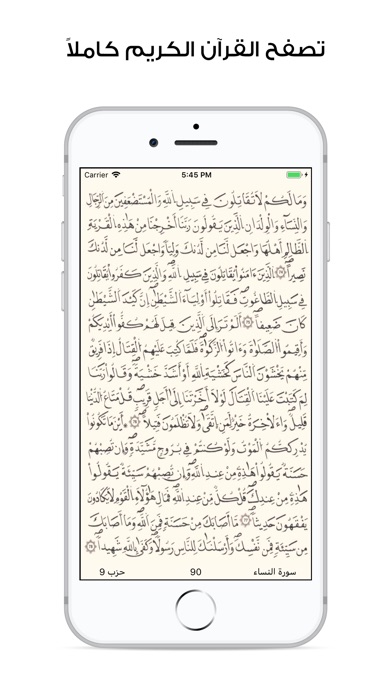 تصفح القرآن الكريم كاملاً
Carrier 5:45 PM
وَمَا لَكُمْ لَا تُقَٰتِلُونَ فِي سَبِيلِ اللَّهِ وَالْمُسْتَضْعَفِينَ مِنَ الرِّجَالِ
وَالنِّسَاءِ وَالْوِلْدَٰنِ الَّذِينَ يَقُولُونَ رَبَّنَا أَخْرِجْنَا مِنْ هَٰذِهِ الْقَرْيَةِ
الظَّالِمِ أَهْلُهَا وَاجْعَل لَّنَا مِن لَّدُنكَ وَلِيّاً وَاجْعَل لَّنَا مِن لَّدُنكَ
نَصِيراً ۝ الَّذِينَ ءَامَنُوا يُقَٰتِلُونَ فِي سَبِيلِ اللَّهِ وَالَّذِينَ كَفَرُوا يُقَٰتِلُونَ
فِي سَبِيلِ الطَّٰغُوتِ فَقَٰتِلُوا أَوْلِيَاءَ الشَّيْطَٰنِ إِنَّ كَيْدَ الشَّيْطَٰنِ
كَانَ ضَعِيفاً ۝ أَلَمْ تَرَ إِلَى الَّذِينَ قِيلَ لَهُمْ كُفُّوا أَيْدِيَكُمْ
وَأَقِيمُوا الصَّلَوٰةَ وَءَاتُوا الزَّكَوٰةَ فَلَمَّا كُتِبَ عَلَيْهِمُ الْقِتَالُ إِذَا فَرِيقٌ
مِّنْهُمْ يَخْشَوْنَ النَّاسَ كَخَشْيَةِ اللَّهِ أَوْ أَشَدَّ خَشْيَةً وَقَالُوا رَبَّنَا
لِمَ كَتَبْتَ عَلَيْنَا الْقِتَالَ لَوْلَا أَخَّرْتَنَا إِلَىٰ أَجَلٍ قَرِيبٍ قُلْ مَتَٰعُ الدُّنْيَا
قَلِيلٌ وَالَاخِرَةُ خَيْرٌ لِّمَنِ اتَّقَىٰ وَلَا تُظْلَمُونَ فَتِيلاً ۝ أَيْنَمَا تَكُونُوا
يُدْرِككُّمُ الْمَوْتُ وَلَوْ كُنتُمْ فِي بُرُوجٍ مُّشَيَّدَةٍ وَإِن تُصِبْهُمْ
حَسَنَةٌ يَقُولُوا هَٰذِهِ مِنْ عِندِ اللَّهِ وَإِن تُصِبْهُمْ سَيِّئَةٌ يَقُولُوا
هَٰذِهِ مِنْ عِندِكَ قُلْ كُلٌّ مِّنْ عِندِ اللَّهِ فَمَالِ هَٰؤُلَاءِ الْقَوْمِ لَا يَكَادُونَ
يَفْقَهُونَ حَدِيثاً ۝ مَّا أَصَابَكَ مِنْ حَسَنَةٍ فَمِنَ اللَّهِ وَمَا أَصَابَكَ
مِن سَيِّئَةٍ فَمِن نَّفْسِكَ وَأَرْسَلْنَٰكَ لِلنَّاسِ رَسُولاً وَكَفَىٰ بِاللَّهِ شَهِيداً ۝
سورة النساء 90 حزب 9